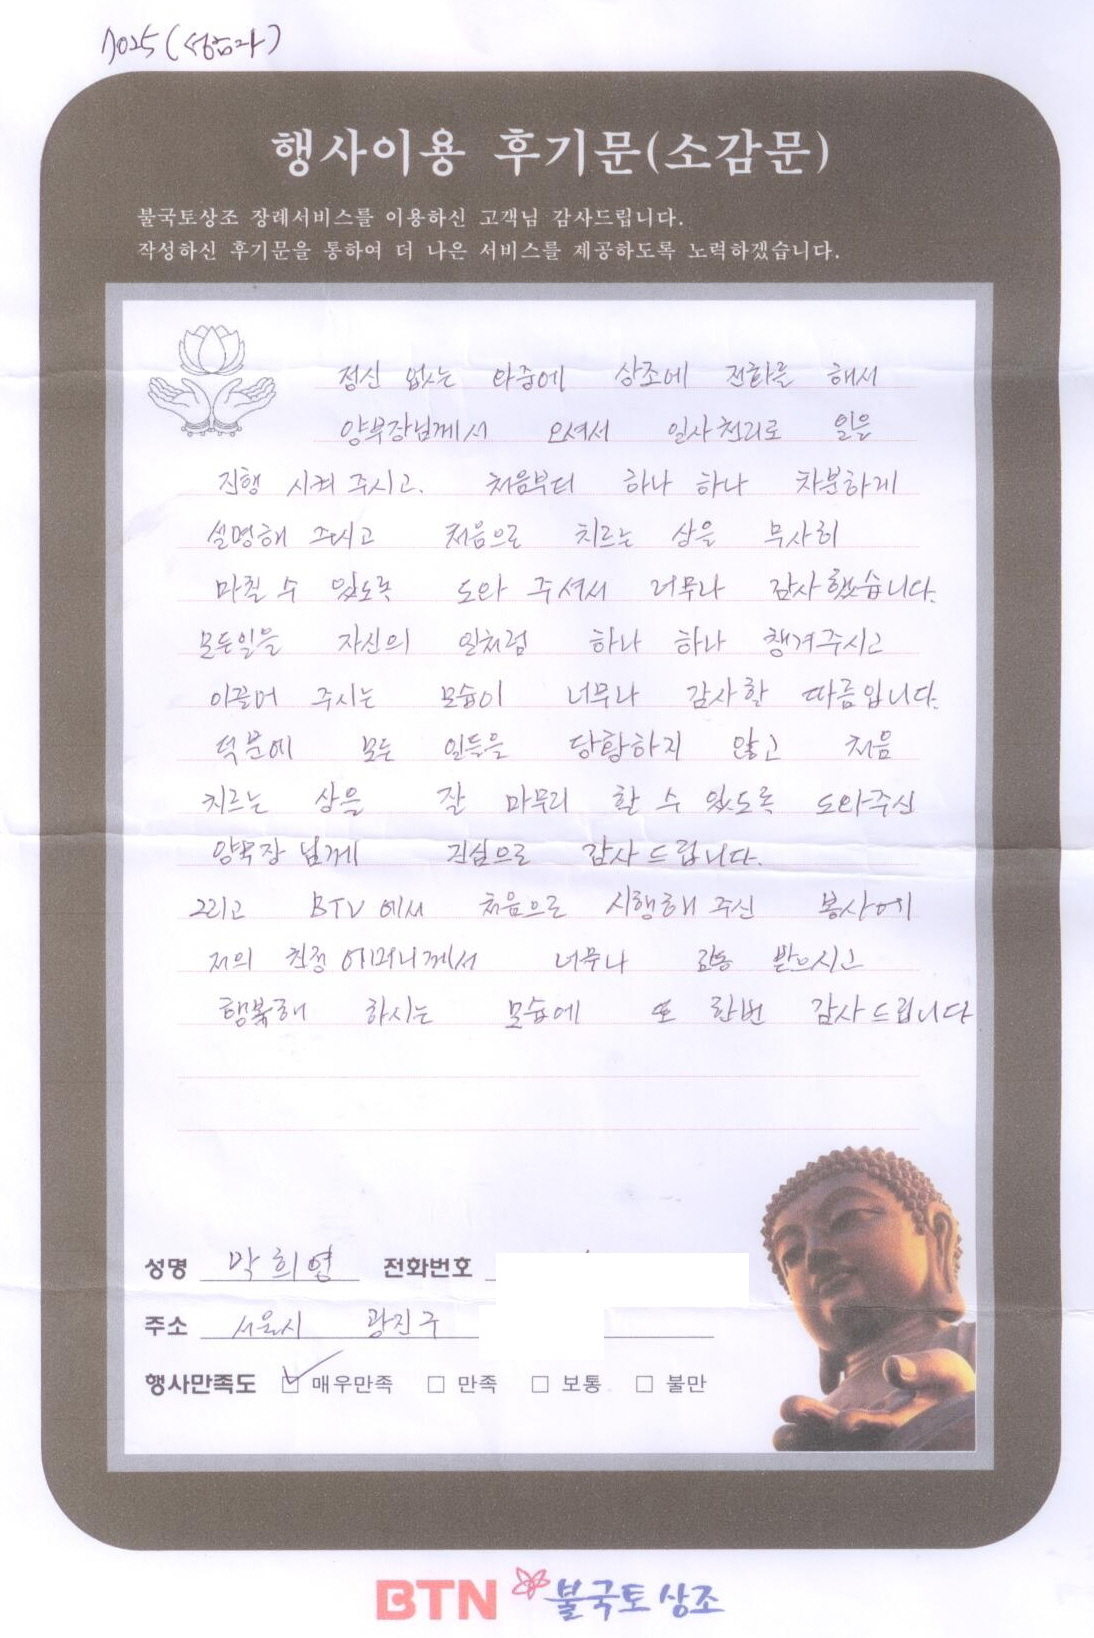 행사이용 후기문(소감문)
불국토상조 장례서비스를 이용하신 고객님 감사드립니다.
작성하신 후기문을 통하여 더 나은 서비스를 제공하도록 노력하겠습니다.
정신 없는 와중에 상조에 전화를 해서
양부장님께서 오셔서 일사천리로 일을
진행 시켜 주시고. 처음부터 하나 하나 차분하게
설명해 주시고 처음으로 치르는 상을 무사히
마칠 수 있도록 도와 주셔서 너무나 감사했습니다.
모든일을 자신의 일처럼 하나 하나 챙겨주시고
이끌어 주시는 모습이 너무나 감사할 따름입니다.
덕분에 모든 일들을 당황하지 않고 처음
치르는 상을 잘 마무리 할 수 있도록 도와주신
양부장 님께 진심으로 감사 드립니다.
그리고 BTV 에서 처음으로 시행해 주신 봉사에
저의 친정 어머니께서 너무나 감동 받으시고
행복해 하시는 모습에 또 한번 감사 드립니다
성명 박희영 전화번호
주소 서울시 광진구
행사만족도 매우만족 만족 보통 불만
BTN 불국토상조